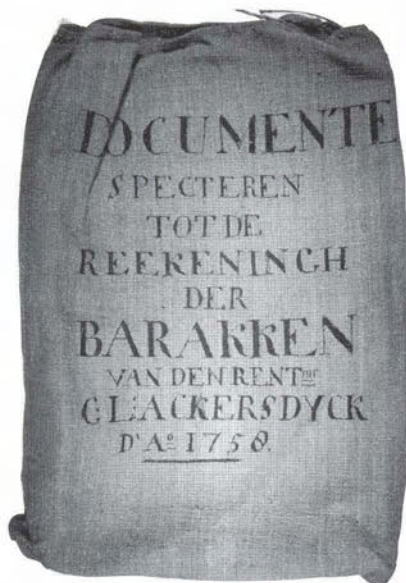 DOCUMENTE
SPECTEREN
TOT DE
REEKENINGH
DER
BARAKKEN
VAN DEN RENTmr
C:L:ACKERSDYCK
D'Ao 1758.